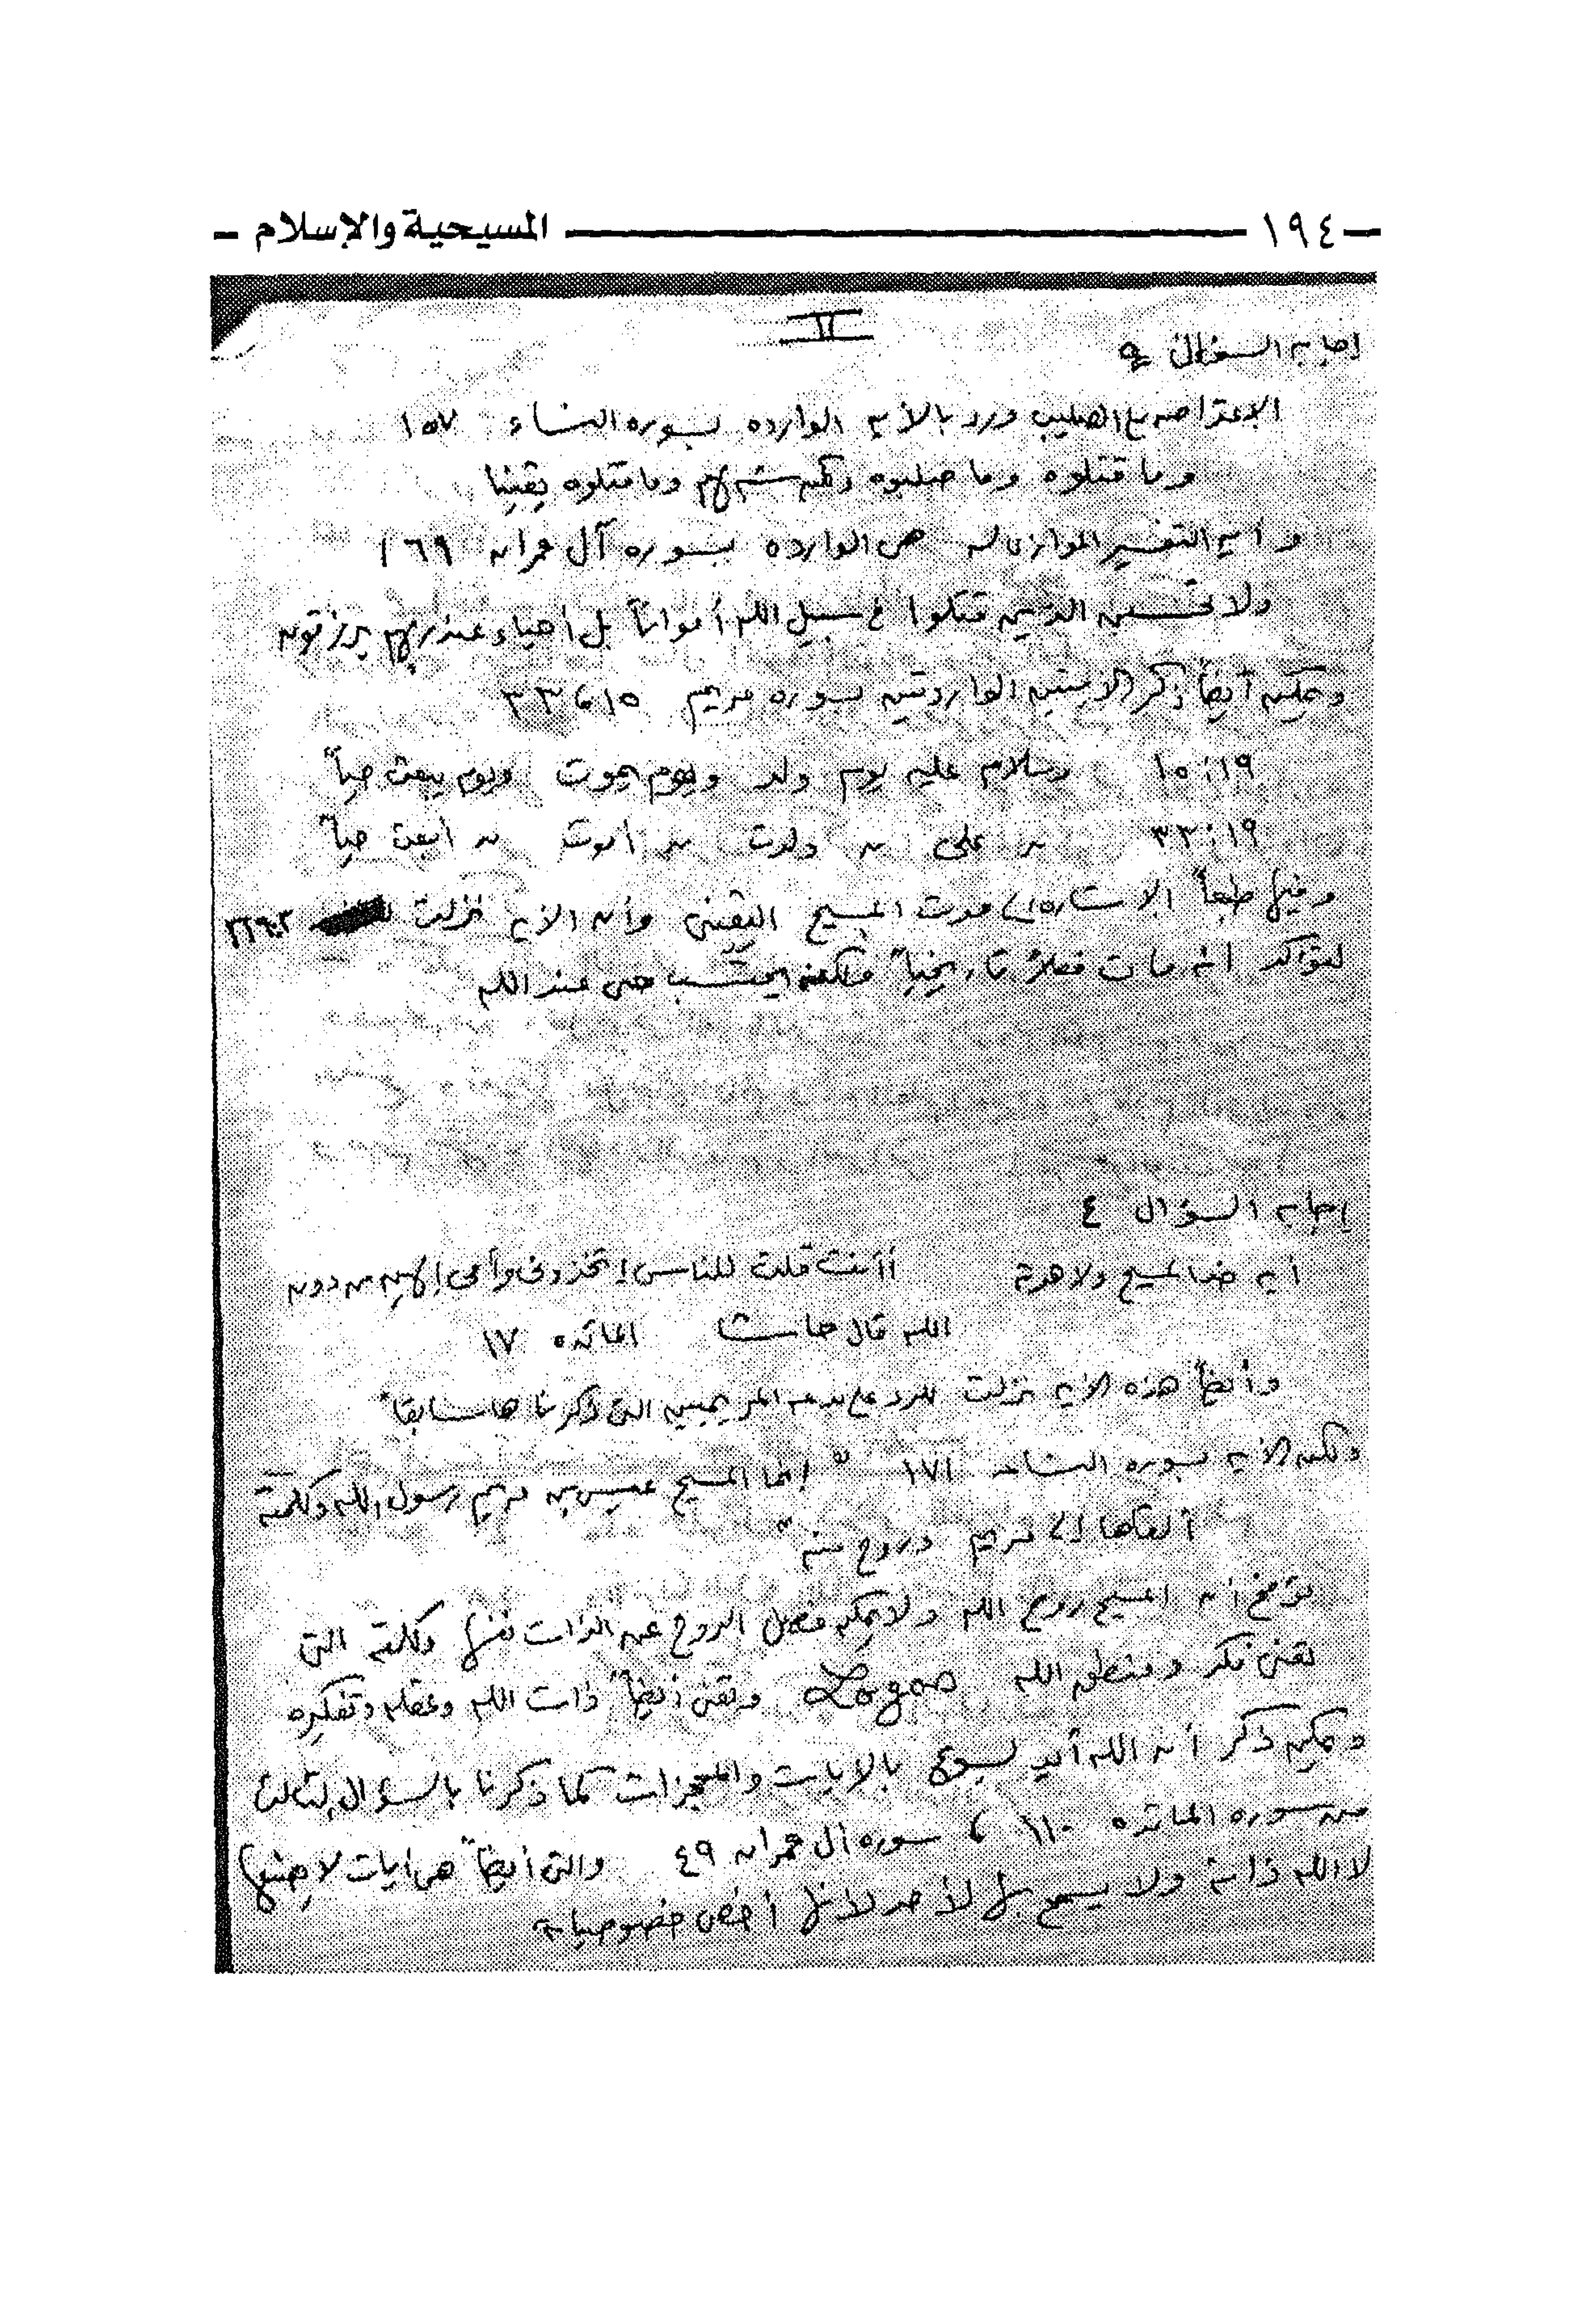 ١٩٤ المسيحية والإسلام
II
إجابه السؤال
الإعتراض على الصليب ورد بالأيه الوارده بسوره النساء ١٥٧
وما قتلوه وما صلبوه ولكن شبه لهم وما قتلوه يقينا
و ايه التفسير الموازى له هى الوارده بسوره آل عمران ١٦٩
ولا تحسبن الذين قتلوا فى سبيل الله أمواتاً بل أحياء عند ربهم يرزقون
ويمكن أيضاً ذكر الايتين الواردتين بسوره مريم ١٥، ٣٣
١٩:١٥ وسلام عليه يوم ولد ويوم يموت ويوم يبعث حياً
١٩:٣٣ " على " ولدت " أموت " أبعث حياً
وفيها طبعاً الإشاره إلى موت المسيح اليقينى وأن الأيه نزلت
لتؤكد انه مات فعلاً تاريخياً ولكنه حى عند الله
إجابه السؤال ٤
أيه ضد المسيح ولاهوته أأنت قلت للناس إتخذونى وأمى إلهين من دون
الله قال حاشا المائده ١٧
وأيضاً هذه الأيه نزلت للرد على بدعه المريميين التى ذكرناها سابقاً
ولكن الأيه بسوره النساء ١٧١ " إنما المسيح عيسى بن مريم رسول الله وكلمته
ألقاها إلى مريم وروح منه "
توضح أن المسيح روح الله ولا يمكن فصل الروح عن الذات نفسها وكلمته التى
تعنى فكر ومنطق الله Logos وتعنى أيضاً ذات الله وعقله وتفكيره
ويمكن ذكر أن الله أيد يسوع بالايات والمعجزات كما ذكرنا بالسؤال الثالث
من سوره المائده ١١٠ ، سوره آل عمران ٤٩ والتى أيضاً هى ايات لا
لا الله ذاته ولا يسمح بها لأحد لأنها أخص خصوصياته